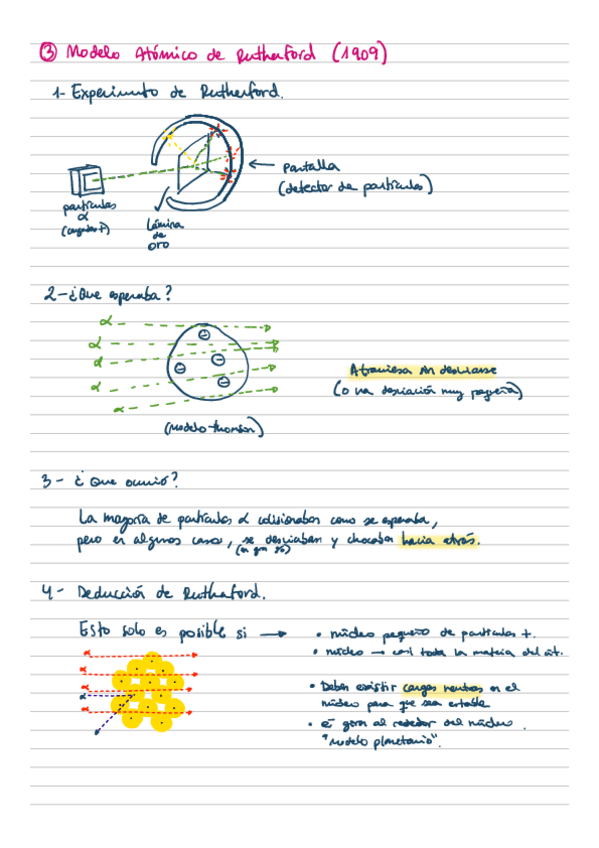 ③ Modelo Atómico de Rutherford (1909)
1- Experimento de Rutherford.
Pantalla
(detector de partículas)
partículas
α
(cargadas +)
Lámina
de
oro
2- ¿Que esperaba?
α
α
α
α
α
Atraviesa sin desviarse
(o una desviación muy pequeña)
(modelo thomson)
3- ¿Que ocurrió?
La mayoría de partículas α colisionaban como se esperaba,
pero en algunos casos, se desviaban y chocaban hacia atrás.
4- Deducción de Rutherford.
Esto solo es posible si →
• núcleo pequeño de partículas +.
• núcleo → casi toda la materia del át.
• Deben existir cargas neutras en el
núcleo para que sea estable
• e⁻ giran al rededor del núcleo.
"modelo planetario".
α
α
α
α
α